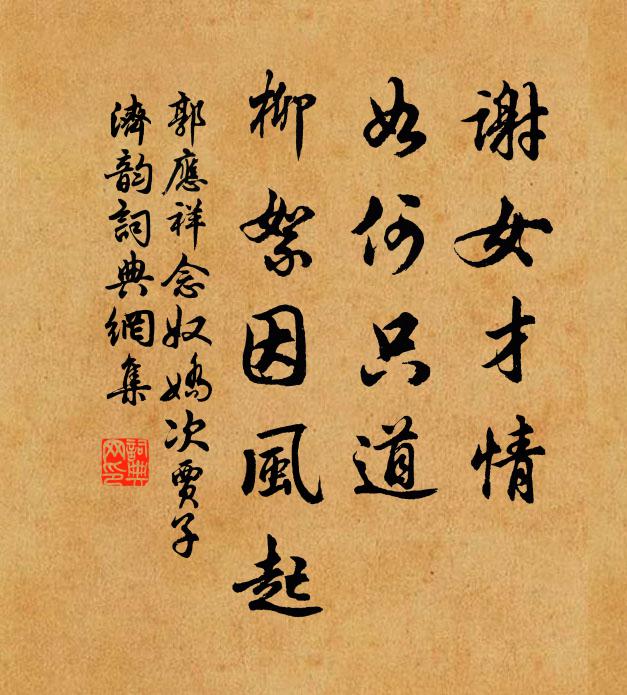 謝女才情
如何只道
柳絮因風起
郭應祥念奴嬌次賈子
濟韵詞典網集
詞典
网印